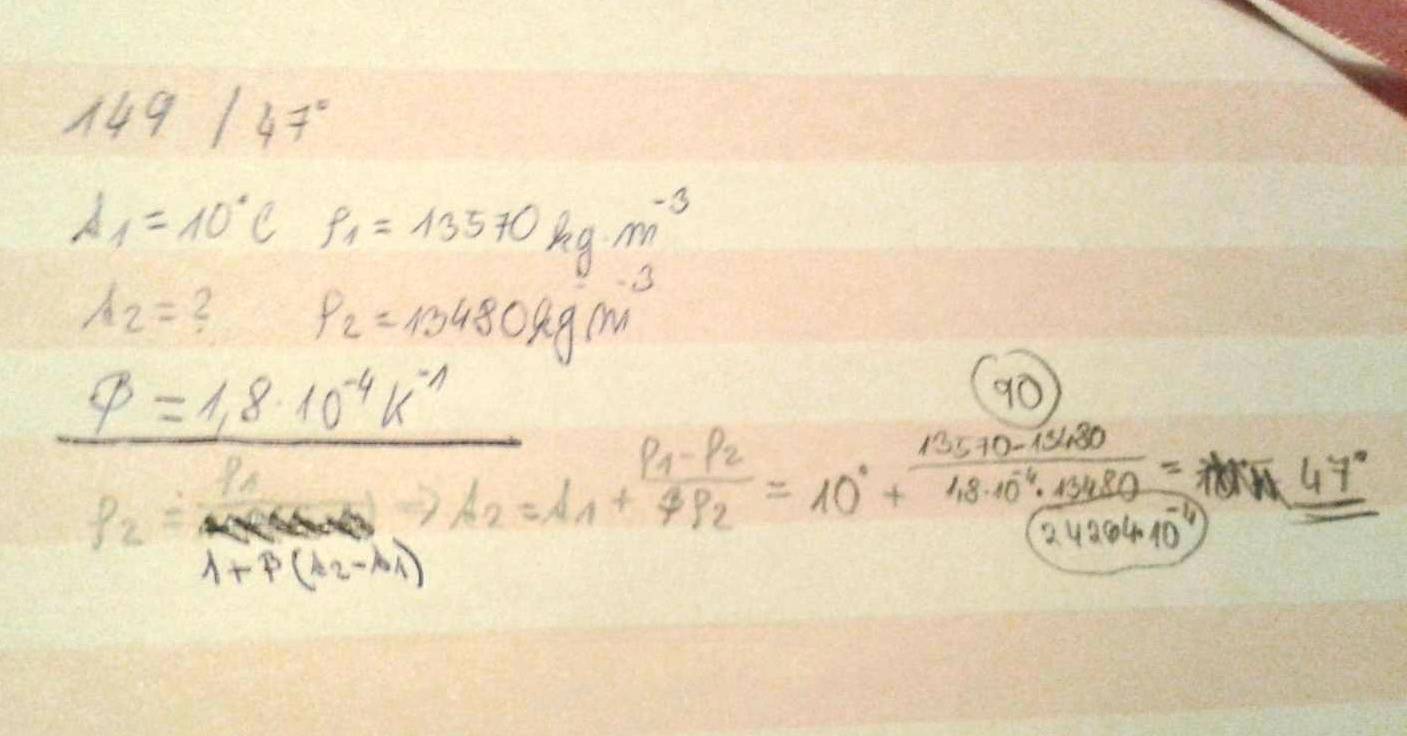 149 / 47°
t₁ = 10°C ρ₁ = 13570 kg·m⁻³
t₂ = ? ρ₂ = 13480 kg m⁻³
β = 1,8·10⁻⁴ K⁻¹
ρ₂ = ρ₁ / (1+β(t₂-t₁)) => t₂ = t₁ + (ρ₁-ρ₂)/(βρ₂) = 10° + (13570-13480)/(1,8·10⁻⁴·13480) = 47°
90
24264·10⁻⁴